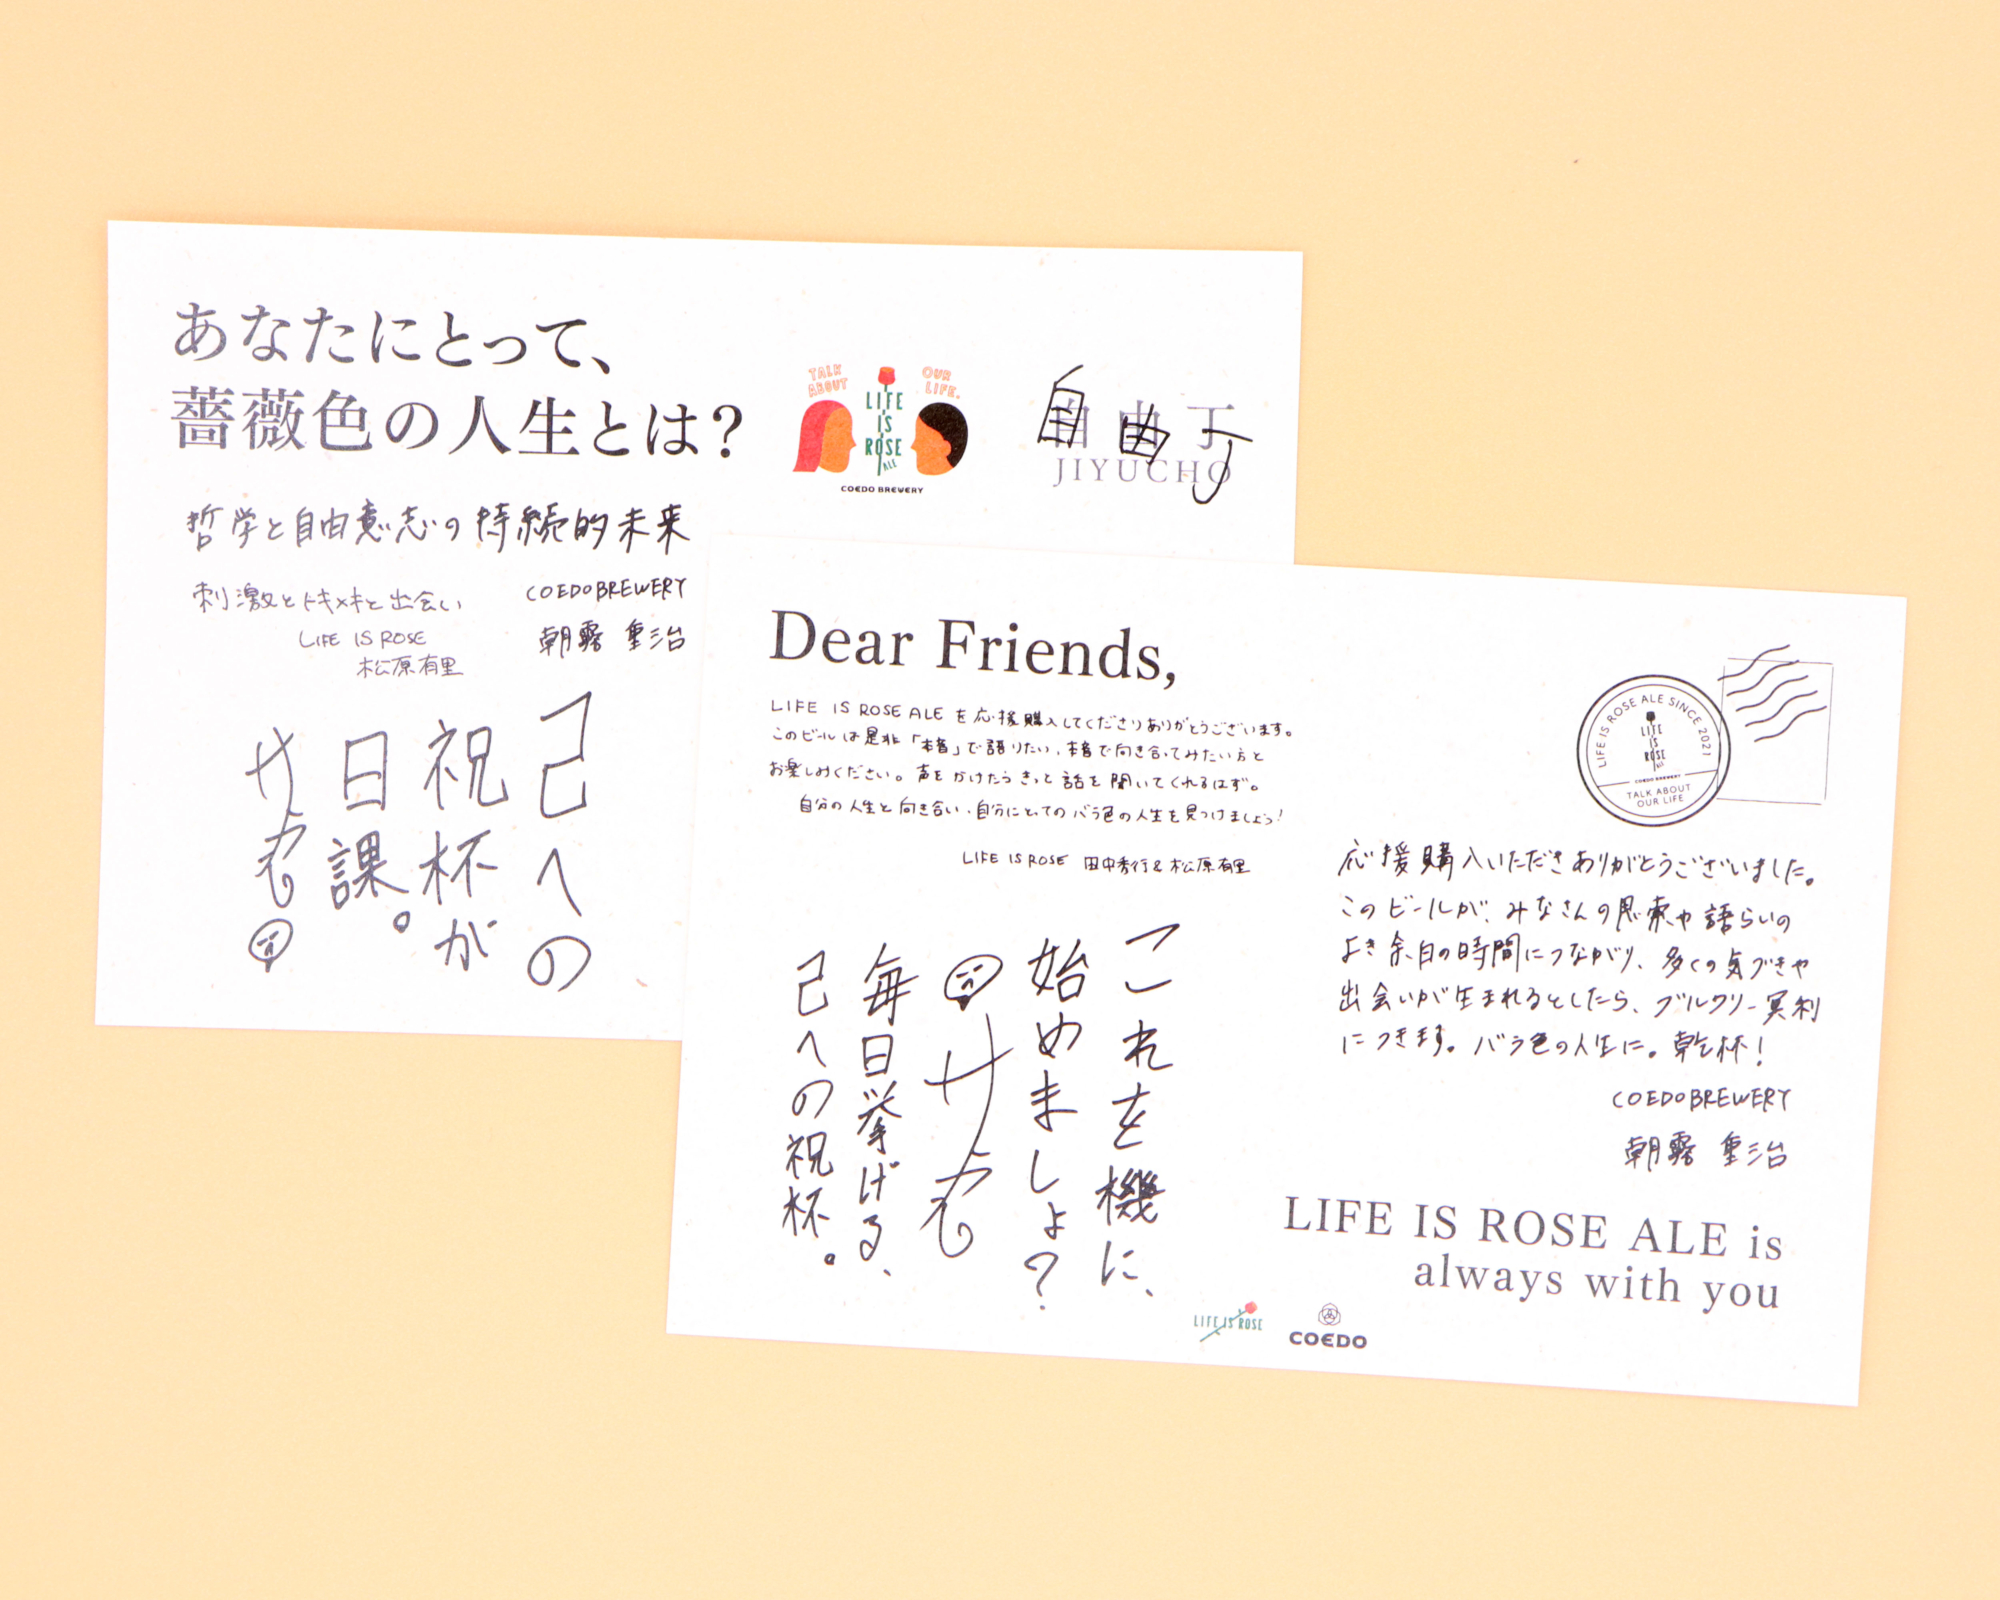 あなたにとって、
薔薇色の人生とは？
TALK
ABOUT
OUR
LIFE.
LIFE
IS
ROSE
ALE
COEDO BREWERY
自由丁
自由丁
JIYUCHO
哲学と自由意志の持続的未来
COEDOBREWERY
朝霧 重治
刺激とトキメキと出会い
LIFE IS ROSE
松原有里
己への
祝杯が
日課。
Dear Friends,
LIFE IS ROSE ALE を応援購入してくださりありがとうございます。
このビールは是非「本音」で語りたい、本音で向き合ってみたい方と
お楽しみください。声をかけたらきっと話を聞いてくれるはず。
自分の人生と向き合い、自分にとってのバラ色の人生を見つけましょう！
LIFE IS ROSE 田中秀行 & 松原有里
これを機に、
始めましょ？
毎日挙げる、
己への祝杯。
LIFE IS ROSE ALE SINCE 2021
LIFE
IS
ROSE
ALE
COEDO BREWERY
TALK ABOUT
OUR LIFE
応援購入いただきありがとうございました。
このビールが、みなさんの思索や語らいの
よき余白の時間につながり、多くの気づきや
出会いが生まれるとしたら、ブルワリー冥利
につきます。バラ色の人生に。乾杯！
COEDOBREWERY
朝霧 重治
LIFE IS ROSE ALE is
always with you
LIFE IS ROSE
COEDO